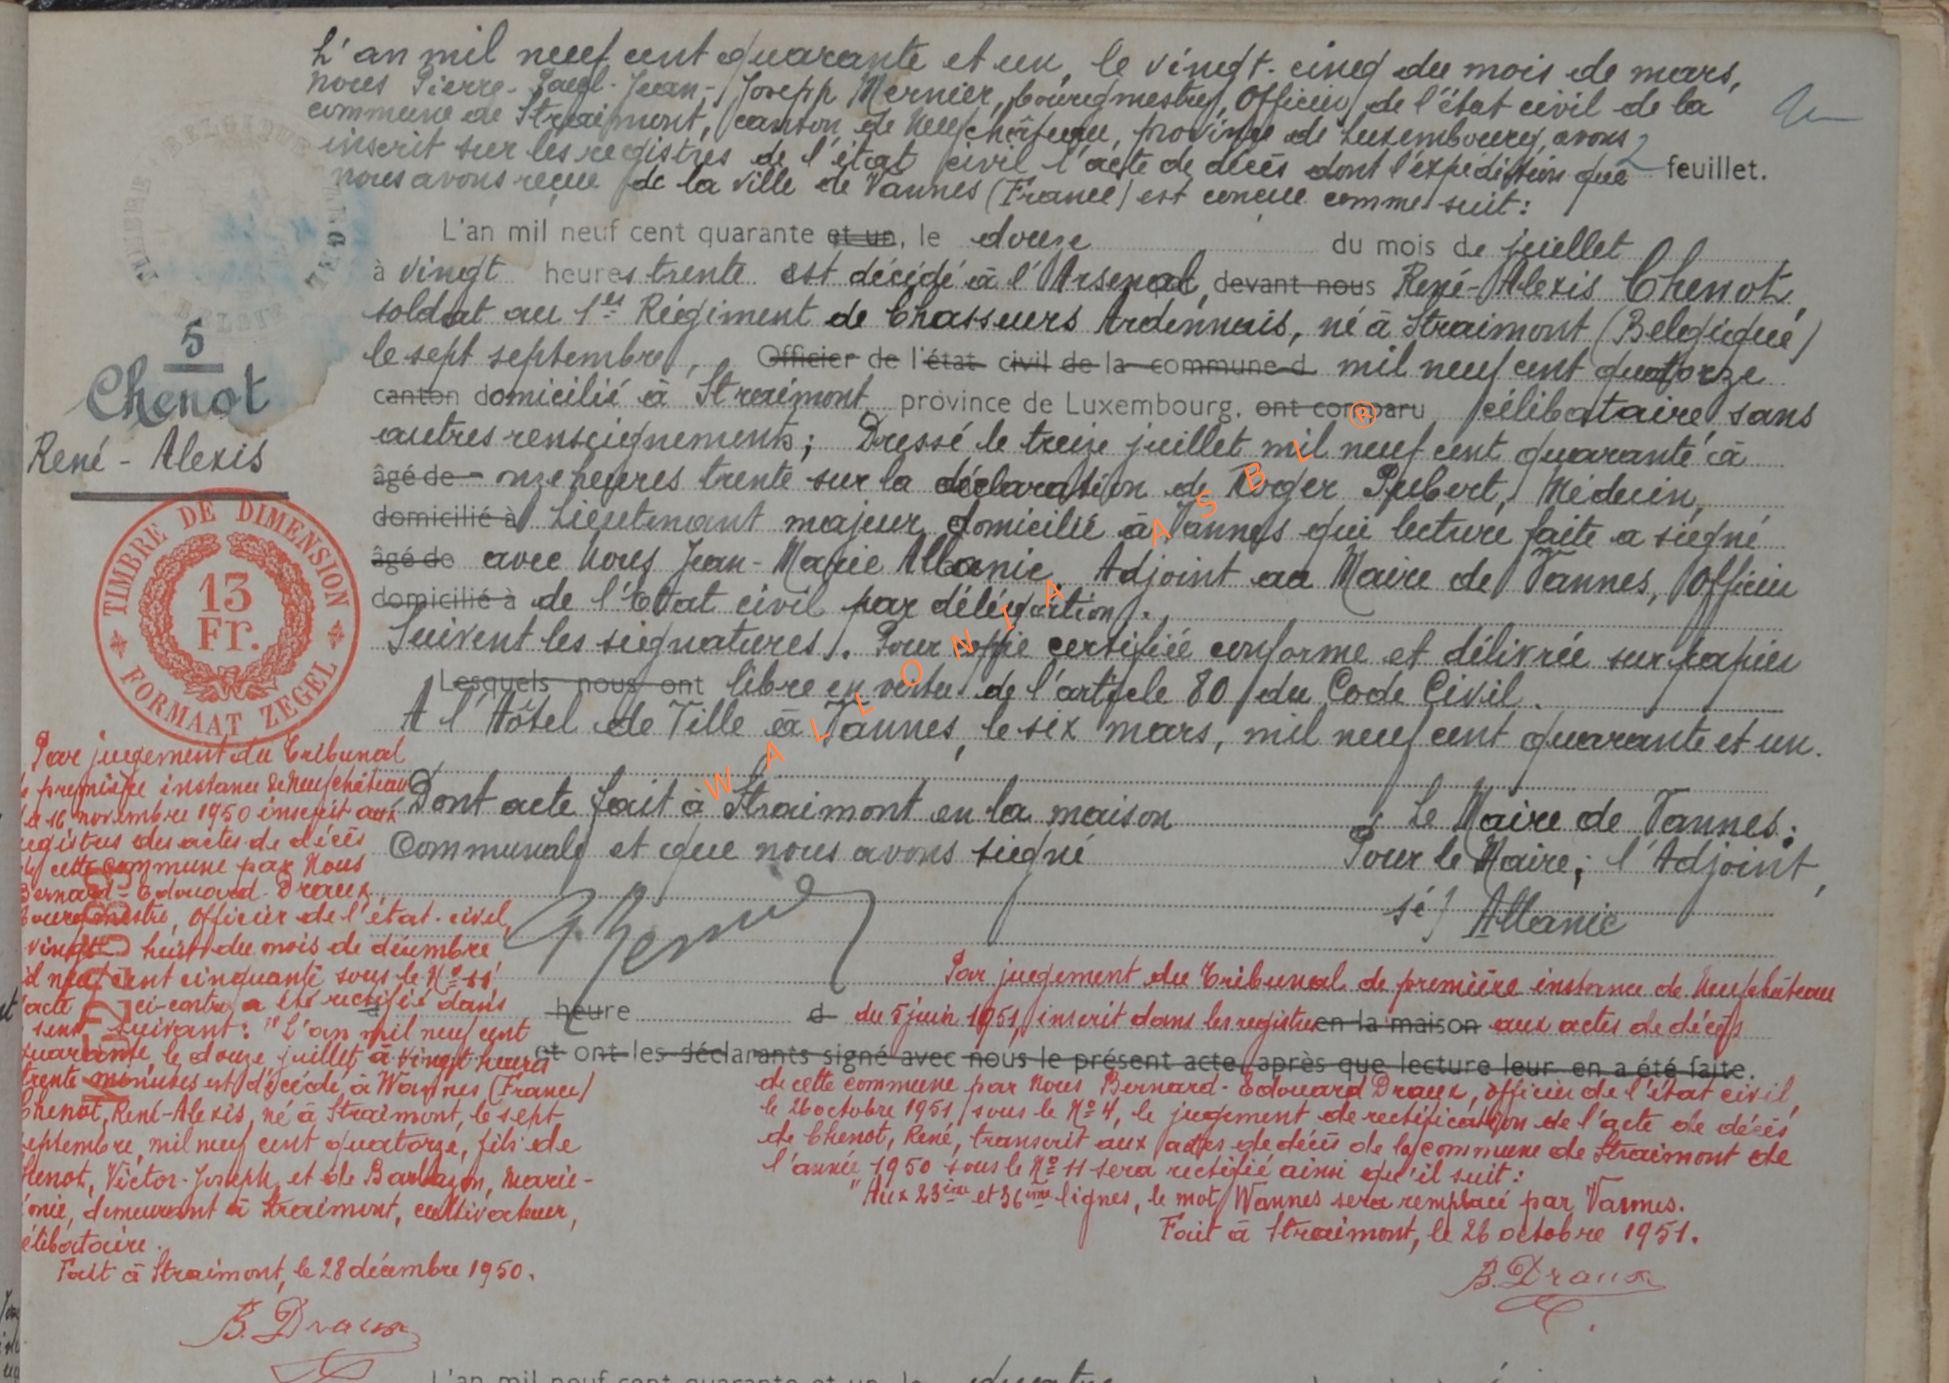 L'an mil neuf cent quarante et un, le vingt-cinq du mois de mars,
nous Pierre-Paul-Jean-Joseph Mernier, bourgmestre, Officier de l'état civil de la
commune de Straimont, canton de Neufchâteau, province de Luxembourg, avons
inscrit sur les registres de l'état civil l'acte de décès dont l'expédition que
2 feuillet.
nous avons reçue de la ville de Vannes (France) est conçue comme suit :
L'an mil neuf cent quarante et un, le douze du mois de juillet
à vingt heures trente est décédé à l'Arsenal, devant nous René-Alexis Chenot,
soldat au 1er Régiment de Chasseurs Ardennais, né à Straimont (Belgique)
le sept septembre, Officier de l'état civil de la commune d mil neuf cent quatorze
canton domicilié à Straimont province de Luxembourg, ont comparu célibataire sans
autres renseignements; Dressé le treize juillet mil neuf cent quarante à
âgé de onze heures trente sur la déclaration de Roger Pubert, Médecin,
domicilié à Lieutenant majeur domicilié à Vannes qui lecture faite a signé
âgé de avec Nous Jean-Marie Allanic Adjoint au Maire de Vannes, Officier
domicilié à de l'Etat civil par délégation.
Suivent les signatures. Pour copie certifiée conforme et délivrée sur papier
Lesquels nous ont libre en vertu de l'article 80 du Code Civil.
A l'Hôtel de Ville à Vannes, le six mars, mil neuf cent quarante et un.
Dont acte fait à Straimont en la maison
Communale et que nous avons signé
Le Maire de Vannes;
Pour le Maire; l'Adjoint,
sé) Allanic
5
Chenot
René-Alexis
TIMBRE DE DIMENSION
13
Fr.
FORMAAT ZEGEL
Par jugement du Tribunal
de première instance de Neufchâteau
du 16 novembre 1950 inscrit aux
registres des actes de décès
de cette commune par Nous
Bernard-Edouard Draux,
Bourgmestre, Officier de l'état-civil,
vingt-huit du mois de décembre
mil neuf cent cinquante sous le No 11
l'acte ci-contre a été rectifié dans
sens suivant : "L'an mil neuf cent
quarante, le douze juillet à vingt heures
trente minutes est décédé à Wannes (France)
Chenot, René-Alexis, né à Straimont, le sept
septembre, mil neuf cent quatorze, fils de
Chenot, Victor-Joseph et de Barbazon, Marie-
demeurant à Straimont, cultivateur,
célibataire.
Fait à Straimont, le 28 décembre 1950.
B. Draux
Par jugement du Tribunal de première instance de Neufchâteau
heure d du 5 juin 1951, inscrit dans les registres en la maison aux actes de décès
et ont les déclarants signé avec nous le présent acte, après que lecture leur en a été faite.
de cette commune par Nous Bernard-Edouard Draux, officier de l'état civil,
le 26 octobre 1951 sous le No 4, le jugement de rectification de l'acte de décès
de Chenot, René, transcrit aux actes de décès de la commune de Straimont de
l'année 1950 sous le No 11 sera rectifié ainsi qu'il suit :
"Aux 23ème et 36ème lignes, le mot Wannes sera remplacé par Vannes.
Fait à Straimont, le 26 octobre 1951.
B. Draux
WALLONIA ASBL ®
L'an mil neuf cent quarante et un, le quatre